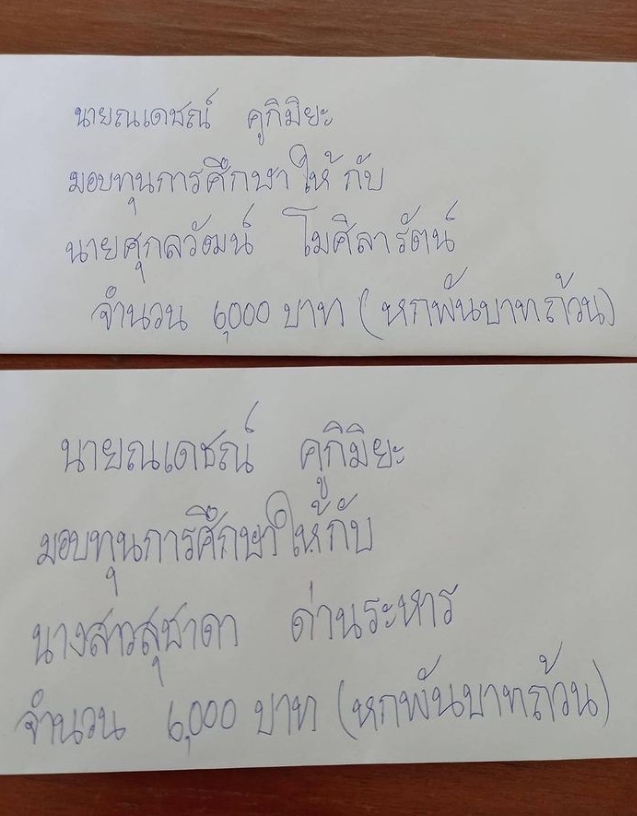 นายณเดชณ์ คูกิมิยะ
มอบทุนการศึกษาให้กับ
นายศุกลวัฒน์ โมศิลารัตน์
จำนวน 6,000 บาท (หกพันบาทถ้วน)
นายณเดชณ์ คูกิมิยะ
มอบทุนการศึกษาให้กับ
นางสาวสุชาดา ด่านระหาร
จำนวน 6,000 บาท (หกพันบาทถ้วน)